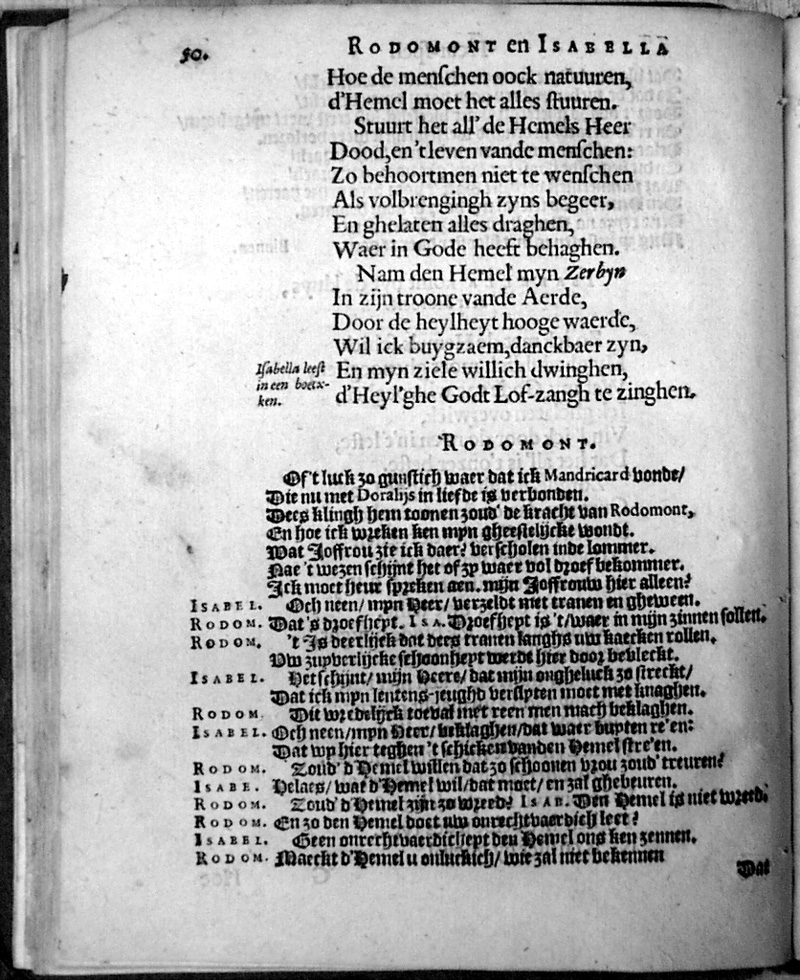 50.
RODOMONT en ISABELLA
Hoe de menſchen oock natuuren,
d'Hemel moet het alles ſtuuren.
Stuurt het all' de Hemels Heer
Dood, en 't leven vande menſchen:
Zo behoortmen niet te wenſchen
Als volbrengingh zyns begeer,
En ghelaten alles draghen,
Waer in Gode heeft behaghen.
Nam den Hemel myn Zerbyn
In zijn troone vande Aerde,
Door de heylheyt hooge waerde,
Wil ick buygzaem, danckbaer zyn,
Iſabella leeſt in een boeck-ken.
En myn ziele willich dwinghen,
d'Heyl'ghe Godt Lof-zangh te zinghen.
RODOMONT.
Of 't luck zo gunſtich waer dat ick Mandricard vonde/
Die nu met Doralijs in liefde is verbonden.
Dees klingh hem toonen zoud' de kracht van Rodomont,
En hoe ick wreken ken myn gheeſtelijcke wondt.
Wat Joffrou zie ick daer? verſcholen inde lommer.
Nae 't wezen ſchijnt het of zy waer vol droef bekommer.
Ick moet heur ſpreken aen. mijn Joffrouw hier alleen?
ISABEL. Och neen/ myn Heer/ verzeldt met tranen en gheween.
RODOM. Dat 's droefheyt. ISA. Droefheyt is 't/ waer in mijn zinnen ſollen.
RODOM. 't Is deerlijck dat dees tranen langhs uw kaecken rollen,
Uw zuyverlijcke ſchoonheyt werdt hier door bevleckt.
ISABEL. Het ſchijnt/ mijn Heere/ dat mijn ongheluck zo ſtreckt/
Dat ick myn lentens-jeughd verſlyten moet met knaghen.
RODOM. Dit wredelijck toeval met reen men mach beklaghen.
ISABEL. Och neen/ myn Heer/ beklaghen/ dat waer buyten re'en:
Dat wy hier teghen 't ſchicken vanden Hemel ſtre'en.
RODOM. Zoud' d'Hemel willen dat zo ſchoonen vrou zoud' treuren?
ISABE. Helaes/ wat d'Hemel wil/ dat moet/ en zal ghebeuren.
RODOM. Zoud' d'Hemel zijn zo wreed? ISAB. Den Hemel is niet wreed.
RODOM. En zo den Hemel doet uw onrechtvaerdich leet?
ISABEL. Geen onrechtvaerdicheyt den Hemel ons ken zennen.
RODOM. Maeckt d'Hemel u onluckich/ wie zal niet bekennen
Dat